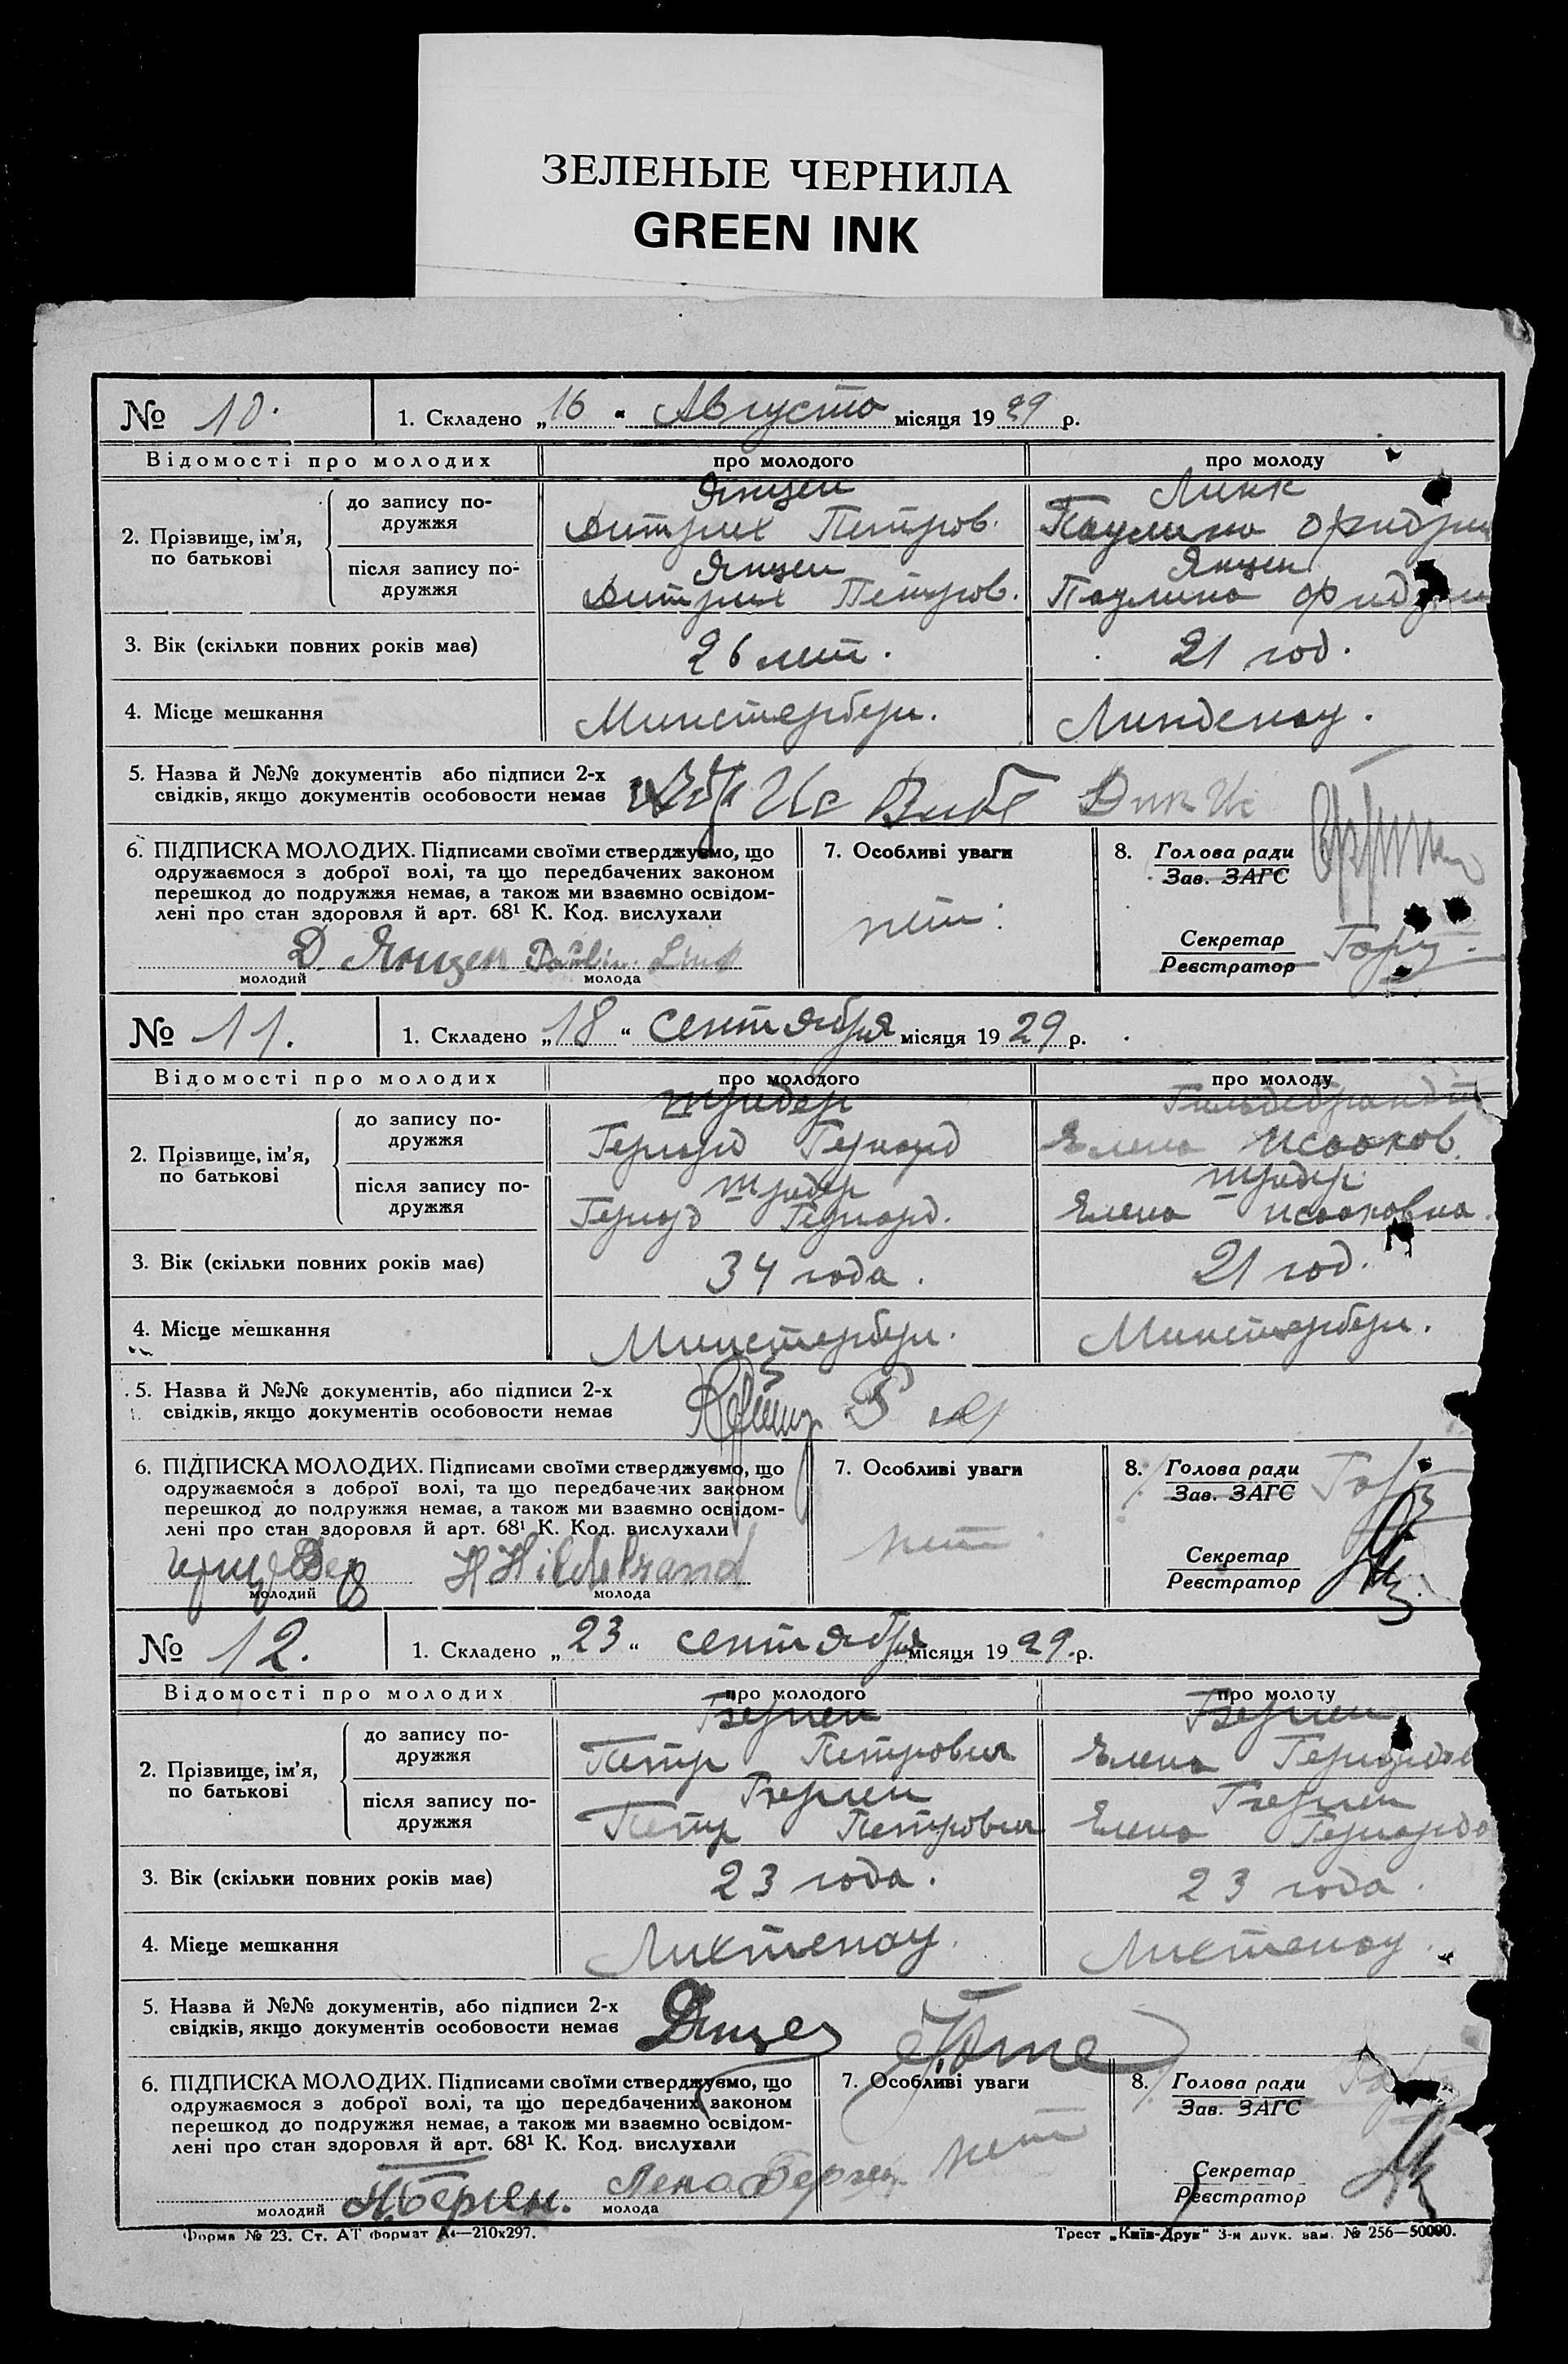 ЗЕЛЕНЫЕ ЧЕРНИЛА
GREEN INK
№ 10. 1. Складено „16“ Августа місяця 1929 р.
Відомості про молодих про молодого про молоду
Янцен Линк
до запису по-
дружжя
Дитрих Петров. Паулина Фридри
2. Прізвище, ім’я,
по батькові
Янцен Янцен
після запису по-
дружжя
Дитрих Петров. Паулина
3. Вік (скільки повних років має) 26 лет. 21 год.
4. Місце мешкання Минстерберг. Линденау.
5. Назва й №№ документів або підписи 2-х
свідків, якщо документів особовости немає
Вибе Дик
6. ПІДПИСКА МОЛОДИХ. Підписами своїми стверджуємо, що
одружаємося з доброї волі, та що передбачених законом
перешкод до подружжя немає, а також ми взаємно освідом-
лені про стан здоровля й арт. 68¹ К. Код. вислухали
Д. Янцен Link
молодий молода
7. Особливі уваги
нет.
8. Голова ради
Зав. ЗАГС
Секретар
Реєстратор
№ 11. 1. Складено „18“ сентября місяця 1929 р.
Відомості про молодих про молодого про молоду
Шредер Гильдебрандт
до запису по-
дружжя
Гергард Гергард Елена Исааков.
2. Прізвище, ім’я,
по батькові
Шредер Шредер
після запису по-
дружжя
Гергард Гергард. Елена Исааковна.
3. Вік (скільки повних років має) 34 года. 21 год.
4. Місце мешкання Минстерберг. Минстерберг.
5. Назва й №№ документів, або підписи 2-х
свідків, якщо документів особовости немає
6. ПІДПИСКА МОЛОДИХ. Підписами своїми стверджуємо, що
одружаємося з доброї волі, та що передбачених законом
перешкод до подружжя немає, а також ми взаємно освідом-
лені про стан здоровля й арт. 68¹ К. Код. вислухали
H Hildebrand
молодий молода
7. Особливі уваги
нет.
8. Голова ради
Зав. ЗАГС
Секретар
Реєстратор
№ 12. 1. Складено „23“ сентября місяця 1929 р.
Відомості про молодих про молодого про молоду
Берген Берген
до запису по-
дружжя
Петр Петрович Елена Гергардов
2. Прізвище, ім’я,
по батькові
Берген Берген
після запису по-
дружжя
Петр Петрович Елена Гергардо
3. Вік (скільки повних років має) 23 года. 23 года.
4. Місце мешкання Лихтенау. Лихтенау.
5. Назва й №№ документів, або підписи 2-х
свідків, якщо документів особовости немає
6. ПІДПИСКА МОЛОДИХ. Підписами своїми стверджуємо, що
одружаємося з доброї волі, та що передбачених законом
перешкод до подружжя немає, а також ми взаємно освідом-
лені про стан здоровля й арт. 68¹ К. Код. вислухали
Берген. Лена Берген.
молодий молода
7. Особливі уваги
нет
8. Голова ради
Зав. ЗАГС
Секретар
Реєстратор
Форма № 23. Ст. АТ формат А4—210х297. Трест „Київ-Друк“ 3-я друк. зам. № 256—50000.